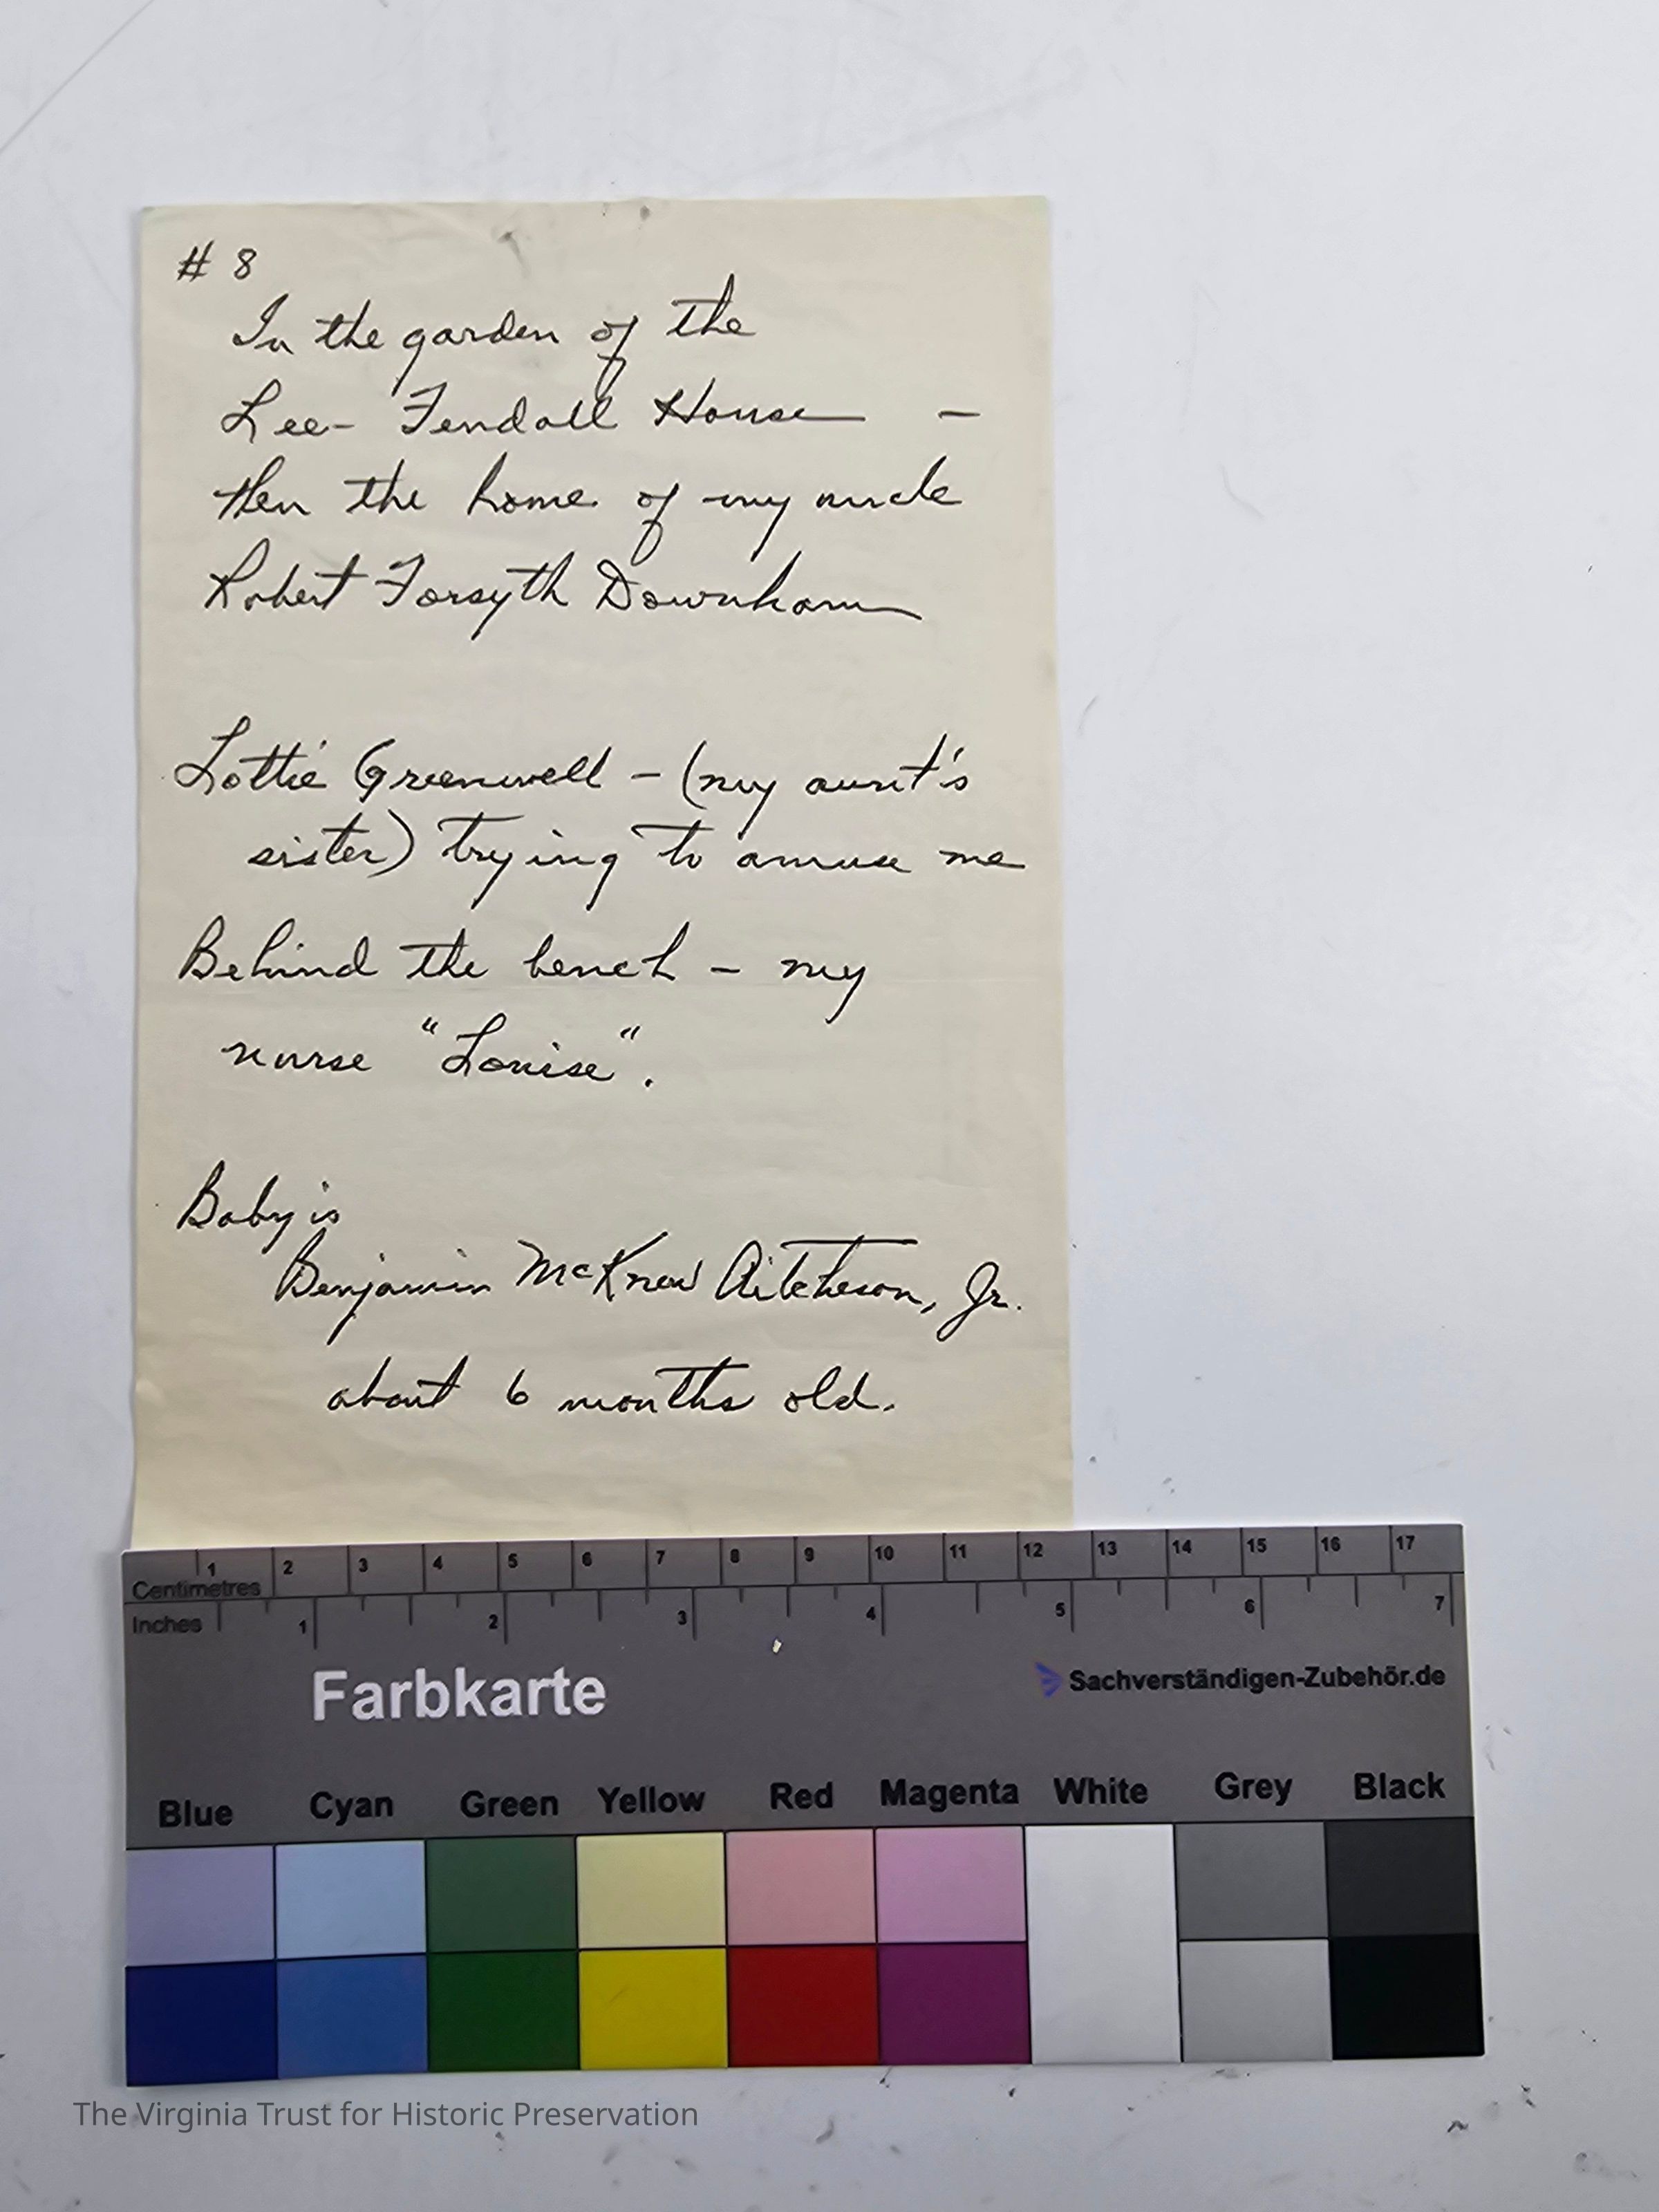 # 8
In the garden of the
Lee- Fendall House -
then the home of my uncle
Robert Forsyth Downham
Lottie Greenwell - (my aunt's
sister) trying to amuse me
Behind the bench - my
nurse "Louise".
Baby is
Benjamin McKnew Aitcheson, Jr.
about 6 months old.
1 2 3 4 5 6 7 8 9 10 11 12 13 14 15 16 17
Centimetres
Inches 1 2 3 4 5 6 7
Farbkarte
Sachverständigen-Zubehör.de
Blue Cyan Green Yellow Red Magenta White Grey Black
The Virginia Trust for Historic Preservation